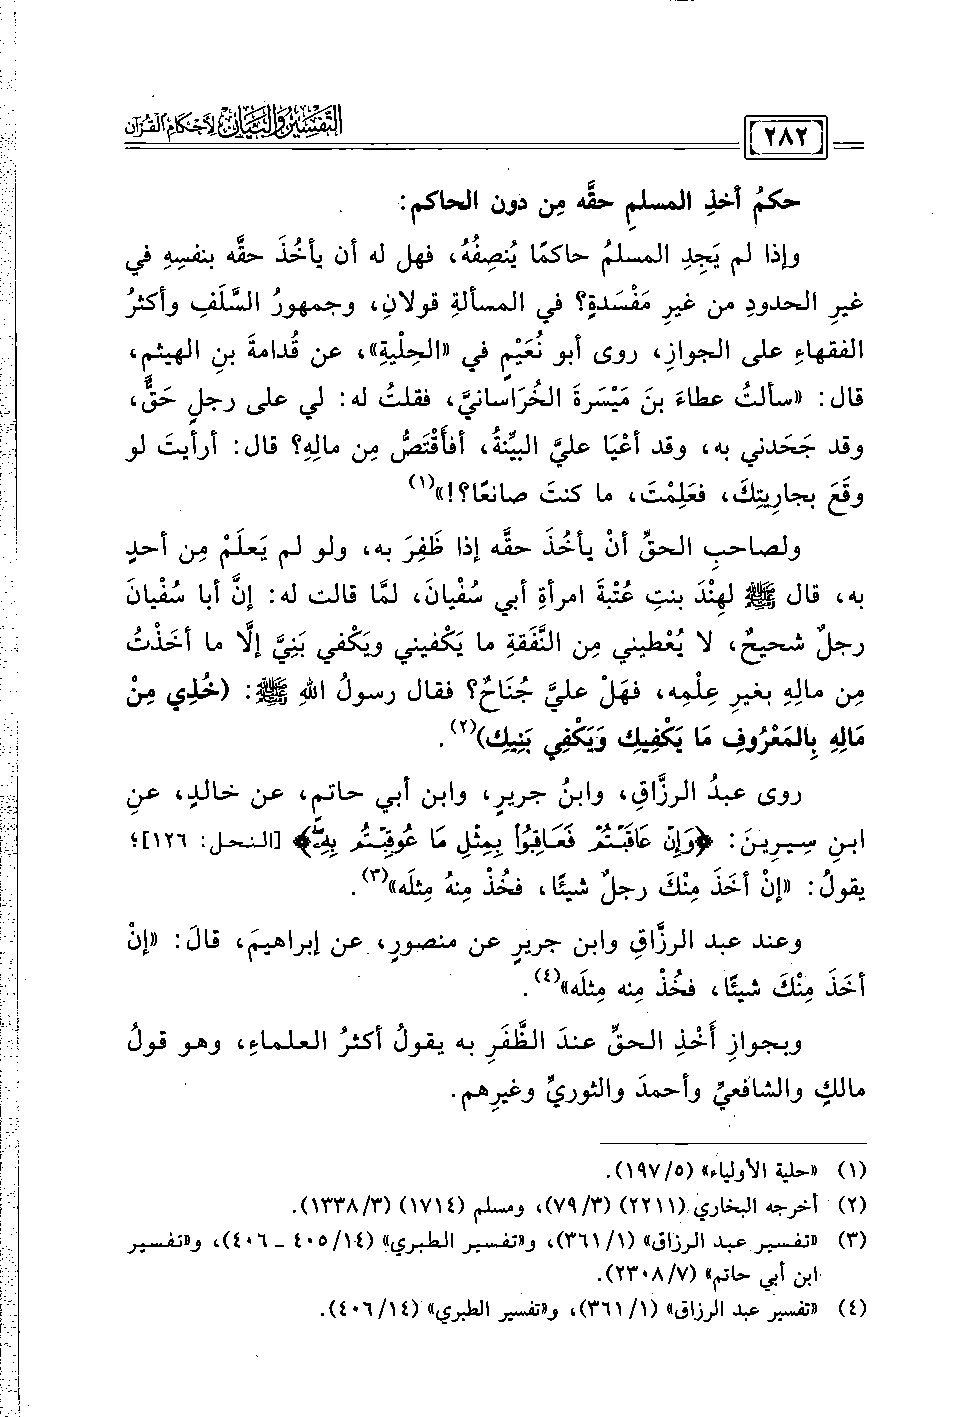 التفسير والبيان لأحكام القرآن
٢٨٢
حكمُ أخذِ المسلمِ حقَّه مِن دون الحاكم:
وإذا لم يَجِدِ المسلمُ حاكمًا يُنصِفُهُ، فهل له أن يأخُذَ حقَّه بنفسِهِ في
غيرِ الحدودِ من غيرِ مَفْسَدةٍ؟ في المسألةِ قولانِ، وجمهورُ السَّلَفِ وأكثرُ
الفقهاءِ على الجوازِ، روى أبو نُعَيْمٍ في «الحِلْيةِ»، عن قُدامةَ بنِ الهيثمِ،
قال: «سألتُ عطاءَ بنَ مَيْسَرةَ الخُرَاسانيَّ، فقلتُ له: لي على رجلٍ حَقٌّ،
وقد جَحَدني به، وقد أعْيَا عليَّ البيِّنةُ، أفأَقْتَصُّ مِن مالِهِ؟ قال: أرأيتَ لو
وقَعَ بجاريتِكَ، فعَلِمْتَ، ما كنتَ صانعًا؟!»(١)
ولصاحبِ الحقِّ أنْ يأخُذَ حقَّه إذا ظَفِرَ به، ولو لم يَعلَمْ مِن أحدٍ
به، قال ﷺ لهِنْدَ بنتِ عُتْبةَ امرأةِ أبي سُفْيانَ، لمَّا قالت له: إنَّ أبا سُفْيانَ
رجلٌ شحيحٌ، لا يُعْطيني مِن النَّفَقةِ ما يَكْفيني ويَكْفي بَنِيَّ إلَّا ما أخَذْتُ
مِن مالِهِ بغيرِ عِلْمِه، فهَلْ عليَّ جُنَاحٌ؟ فقال رسولُ اللهِ ﷺ: (خُذِي مِنْ
مَالِهِ بِالمَعْرُوفِ مَا يَكْفِيكِ وَيَكْفِي بَنِيكِ)(٢).
روى عبدُ الرزَّاقِ، وابنُ جريرٍ، وابن أبي حاتمٍ، عن خالدٍ، عنِ
ابنِ سِيرينَ: ﴿وَإِنْ عَاقَبْتُمْ فَعَاقِبُوا۟ بِمِثْلِ مَا عُوقِبْتُم بِهِۦ﴾ [النحل: ١٢٦]؛
يقولُ: «إنْ أخَذَ مِنْكَ رجلٌ شيئًا، فخُذْ مِنهُ مِثلَه»(٣).
وعند عبد الرزَّاقِ وابن جريرٍ عن منصورٍ، عن إبراهيمَ، قالَ: «إنْ
أخَذَ مِنْكَ شيئًا، فخُذْ مِنه مِثلَه»(٤).
وبجوازِ أَخْذِ الحقِّ عندَ الظَّفَرِ به يقولُ أكثرُ العلماءِ، وهو قولُ
مالكٍ والشافعيِّ وأحمدَ والثوريِّ وغيرِهم.
(١) «حلية الأولياء» (١٩٧/٥).
(٢) أخرجه البخاري (٢٢١١) (٧٩/٣)، ومسلم (١٧١٤) (١٣٣٨/٣).
(٣) «تفسير عبد الرزاق» (٣٦١/١)، و«تفسير الطبري» (٤٠٥/١٤ ـ ٤٠٦)، و«تفسير
ابن أبي حاتم» (٢٣٠٨/٧).
(٤) «تفسير عبد الرزاق» (٣٦١/١)، و«تفسير الطبري» (٤٠٦/١٤).